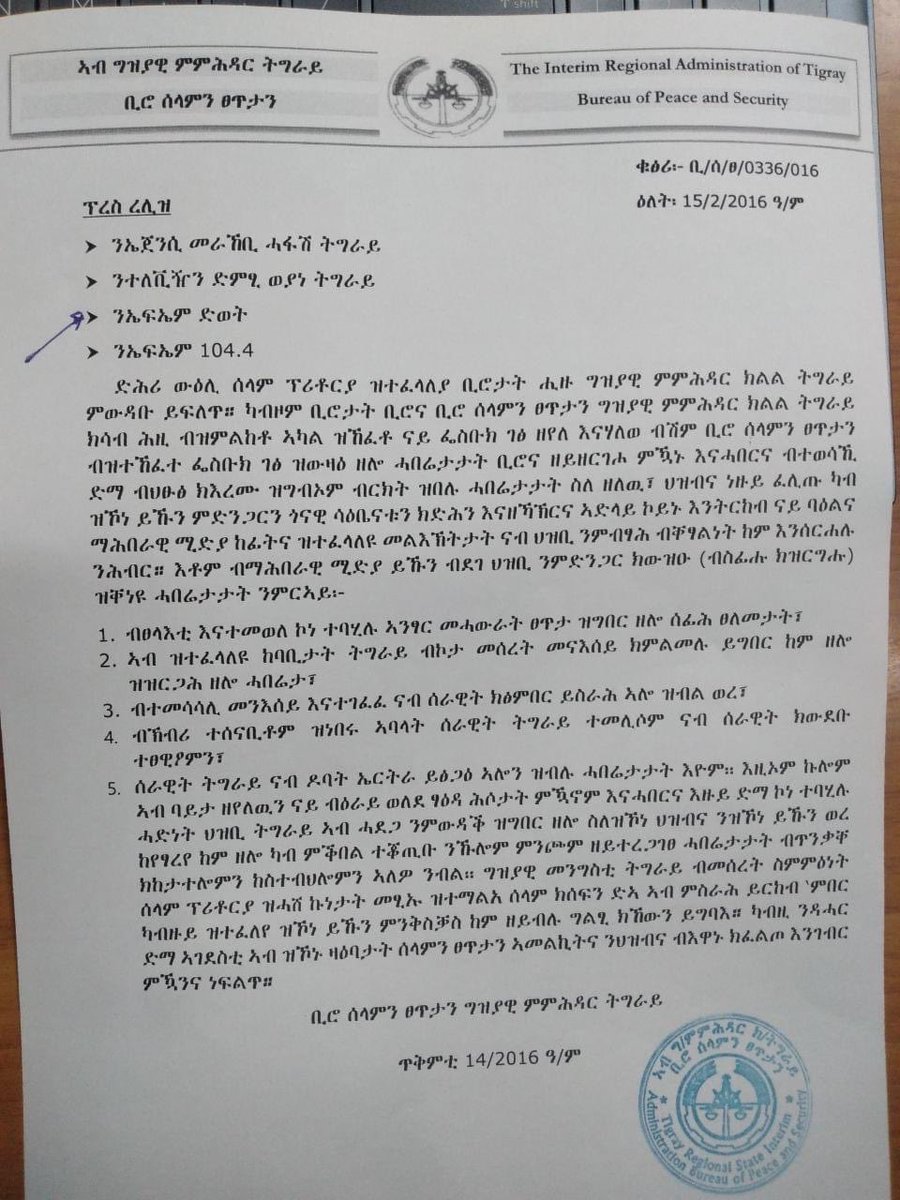 ኣብ ግዝያዊ ምምሕዳር ትግራይ
ቢሮ ሰላምን ፀጥታን
The Interim Regional Administration of Tigray
Bureau of Peace and Security
ቁፅሪ፡- ቢ/ሰ/ፀ/0336/016
ዕለት፡ 15/2/2016 ዓ/ም
ፕረስ ረሊዝ
➤ ንኤጀንሲ መራኸቢ ሓፋሽ ትግራይ
➤ ንተለቪዥን ድምፂ ወያነ ትግራይ
➤ ንኤፍኤም ድወት
➤ ንኤፍኤም 104.4
ድሕሪ ውዕሊ ሰላም ፕሪቶርያ ዝተፈላለያ ቢሮታት ሒዙ ግዝያዊ ምምሕዳር ክልል ትግራይ
ምውዳቡ ይፍለጥ። ካብዞም ቢሮታት ቢሮና ቢሮ ሰላምን ፀጥታን ግዝያዊ ምምሕዳር ክልል ትግራይ
ክሳብ ሕዚ ብዝምልከቶ ኣካል ዝኸፈቶ ናይ ፌስቡክ ገፅ ዘየለ እናሃለወ ብሽም ቢሮ ሰላምን ፀጥታን
ብዝተኸፈተ ፌስቡክ ገፅ ዝውዛዕ ዘሎ ሓበሬታታት ቢሮና ዘይዘርገሖ ምዃኑ እናሓበርና ብተወሳኺ
ድማ ብህፁፅ ክእረሙ ዝግብኦም ብርክት ዝበሉ ሓበሬታታት ስለ ዘለዉ፣ ህዝብና ነዙይ ፈሊጡ ካብ
ዝኾነ ይኹን ምድንጋርን ጎናዊ ሳዕቤናቱን ክድሕን እናዘኻኸርና ኣድላይ ኮይኑ እንትርከብ ናይ ባዕልና
ማሕበራዊ ሚድያ ከፊትና ዝተፈላለዩ መልእኽትታት ናብ ህዝቢ ንምብፃሕ ብቐፃልነት ከም እንሰርሐሉ
ንሕብር። እቶም ብማሕበራዊ ሚድያ ይኹን ብደገ ህዝቢ ንምድንጋር ክውዝዑ (ብስፊሑ ክዝርግሑ)
ዝቐነዩ ሓበሬታታት ንምርኣይ፡-
1. ብፀላእቲ እናተመወለ ኮነ ተባሂሉ ኣንፃር መሓውራት ፀጥታ ዝግበር ዘሎ ሰፊሕ ፀለመታት፣
2. ኣብ ዝተፈላለዩ ከባቢታት ትግራይ ብኮታ መሰረት መናእሰይ ክምልመሉ ይግበር ከም ዘሎ
ዝዝርጋሕ ዘሎ ሓበሬታ፣
3. ብተመሳሳሊ መንእሰይ እናተገፈፈ ናብ ሰራዊት ክፅምበር ይስራሕ ኣሎ ዝብል ወረ፣
4. ብኽብሪ ተሰናቢቶም ዝነበሩ ኣባላት ሰራዊት ትግራይ ተመሊሶም ናብ ሰራዊት ክውደቡ
ተፀዊዖምን፣
5. ሰራዊት ትግራይ ናብ ዶባት ኤርትራ ይፅጋዕ ኣሎን ዝብሉ ሓበሬታታት እዮም። እዚኦም ኩሎም
ኣብ ባይታ ዘየለዉን ናይ ብዕራይ ወለደ ፃዕዳ ሕሶታት ምዃኖም እናሓበርና እዙይ ድማ ኮነ ተባሂሉ
ሓድነት ህዝቢ ትግራይ ኣብ ሓደጋ ንምውዳቕ ዝግበር ዘሎ ስለዝኾነ ህዝብና ንዝኾነ ይኹን ወረ
ከየፃረየ ከም ዘሎ ካብ ምቕበል ተቖጢቡ ንኹሎም ምንጮም ዘይተረጋገፀ ሓበሬታታት ብጥንቃቐ
ክከታተሎምን ከስተብህሎምን ኣለዎ ንብል። ግዝያዊ መንግስቲ ትግራይ ብመሰረት ስምምዕነት
ሰላም ፕሪቶርያ ዝሓሸ ኩነታት መፂኡ ዝተማልአ ሰላም ክሰፍን ድኣ ኣብ ምስራሕ ይርከብ ‘ምበር
ካብዙይ ዝተፈለየ ዝኾነ ይኹን ምንቅስቓስ ከም ዘይብሉ ግልፂ ክኸውን ይግባእ። ካብዚ ንዳሓር
ድማ ኣገደስቲ ኣብ ዝኾኑ ዛዕባታት ሰላምን ፀጥታን ኣመልኪትና ንህዝብና ብእዋኑ ክፈልጦ እንገብር
ምዃንና ነፍልጥ።
ቢሮ ሰላምን ፀጥታን ግዝያዊ ምምሕዳር ትግራይ
ጥቅምቲ 14/2016 ዓ/ም
ኣብ ግ/ምምሕዳር ክ/ትግራይ
ቢሮ ሰላምን ፀጥታን
Tigray Regional State Interim
Administration Bureau of Peace and Security